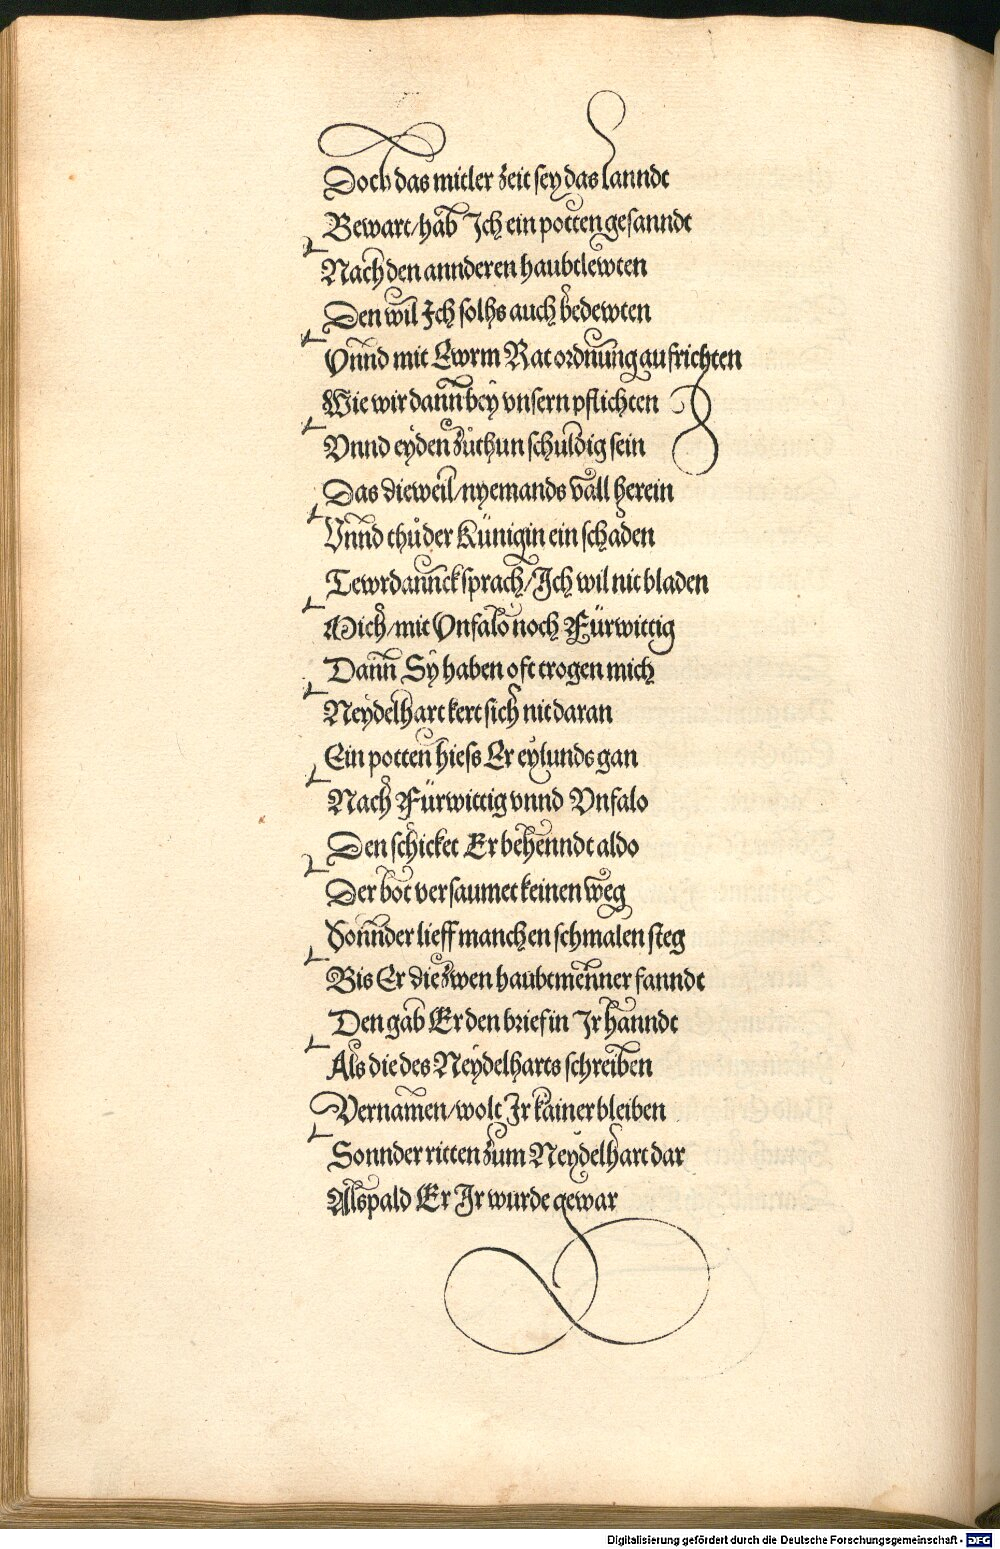 Doch das mitler zeit sey das lanndt
Bewart/hab Ich ein potten gesanndt
Nach den annderen haubtlewten
Den wil Ich solhs auch bedewten
Vnnd mit Ewrm Rat ordnung aufrichten
Wie wir dann bey vnsern pflichten
Vnnd eyden zůthun schuldig sein
Das dieweil/nyemands vall herein
Vnnd thů der Künigin ein schaden
Tewrdannck sprach/Ich wil nit bladen
Mich/mit Vnfalo noch Fürwittig
Dann Sy haben oft trogen mich
Neydelhart kert sich nit daran
Ein potten hiess Er eylunds gan
Nach Fürwittig vnnd Vnfalo
Den schicket Er behenndt aldo
Der bot versaumet keinen weg
Sonnder lieff manchen schmalen steg
Bis Er die zwen haubtmenner fanndt
Den gab Er den brief in Jr hanndt
Als die des Neydelharts schreiben
Vernamen/wolt Jr kainer bleiben
Sonnder ritten zum Neydelhart dar
Alspald Er Jr wurde gewar
Digitalisierung gefördert durch die Deutsche Forschungsgemeinschaft - DFG